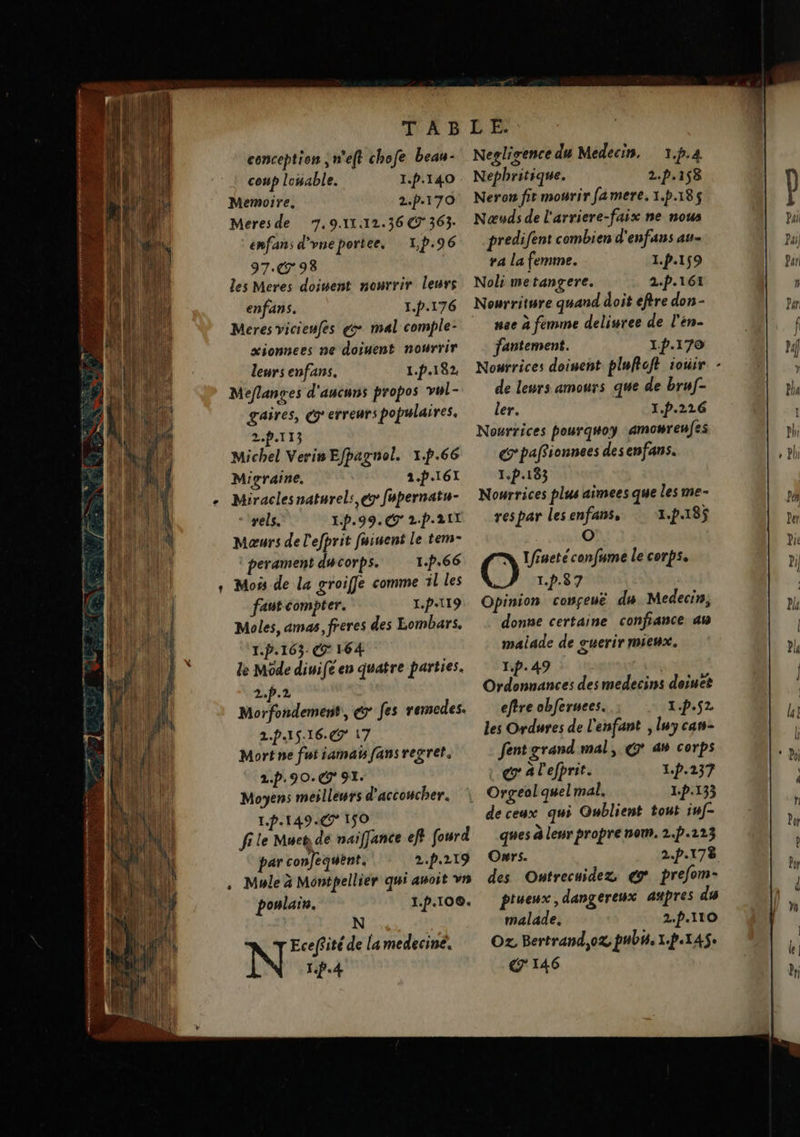 TABLE.
conception, n'est chose beau-
coup loüable. 1.p.140
Memoire. 2.p.170
Meres de 7.9.11.12.36 & 363.
enfans d'vne portee. 1.p.96
97.& 98
les Meres doiuent nourrir leurs
enfans. 1.p.176
Meres vicieuses & mal comple-
xionnees ne doiuent nourrir
leurs enfans. 1.p.182
Meslanges d'aucuns propos vul-
gaires, & erreurs populaires.
2.p.113
Michel Verin Espagnol. 1.p.66
Migraine. 2.p.161
Miracles naturels, & supernatu-
rels. 1.p.99.& 2.p.211
Mœurs de l'esprit suiuent le tem-
perament du corps. 1.p.66
Mois de la groisse comme il les
faut compter. 1.p.119
Moles, amas, freres des Lombars.
1.p.163.& 164
le Mõde diuisé en quatre parties.
2.p.2
Morfondement, & ses remedes.
2.p.15.16.& 17
Mort ne fut iamais sans regret.
2.p.90.& 91.
Moyens meilleurs d'accoucher.
1.p.149.& 150
si le Muet de naissance est sourd
par consequent. 2.p.219
Mule à Montpellier qui auoit vn
poulain. 1.p.100.
N
Necessité de la medecine.
1.p.4
Negligence du Medecin. 1.p.4
Nephritique. 2.p.158
Neron fit mourir sa mere. 1.p.185
Nœuds de l'arriere-faix ne nous
predisent combien d'enfans au-
ra la femme. 1.p.159
Noli me tangere. 2.p.161
Nourriture quand doit estre don-
nee à femme deliuree de l'en-
fantement. 1.p.170
Nourrices doiuent plustost iouir
de leurs amours que de brus-
ler. 1.p.226
Nourrices pourquoy amoureuses
& passionnees des enfans.
1.p.183
Nourrices plus aimees que les me-
res par les enfans. 1.p.185
O
Oysiueté consume le corps.
1.p.87
Opinion conçeuë du Medecin,
donne certaine confiance au
malade de guerir mieux.
1.p.49
Ordonnances des medecins doiuẽt
estre obseruees. 1.p.52
les Ordures de l'enfant, luy cau-
sent grand mal, & au corps
& à l'esprit. 1.p.237
Orgeol quel mal. 1.p.133
de ceux qui Oublient tout ius-
ques à leur propre nom. 2.p.223
Ours. 2.p.178
des Outrecuidez & presom-
ptueux, dangereux aupres du
malade. 2.p.110
Oz Bertrand, oz pubis. 1.p.145.
& 146